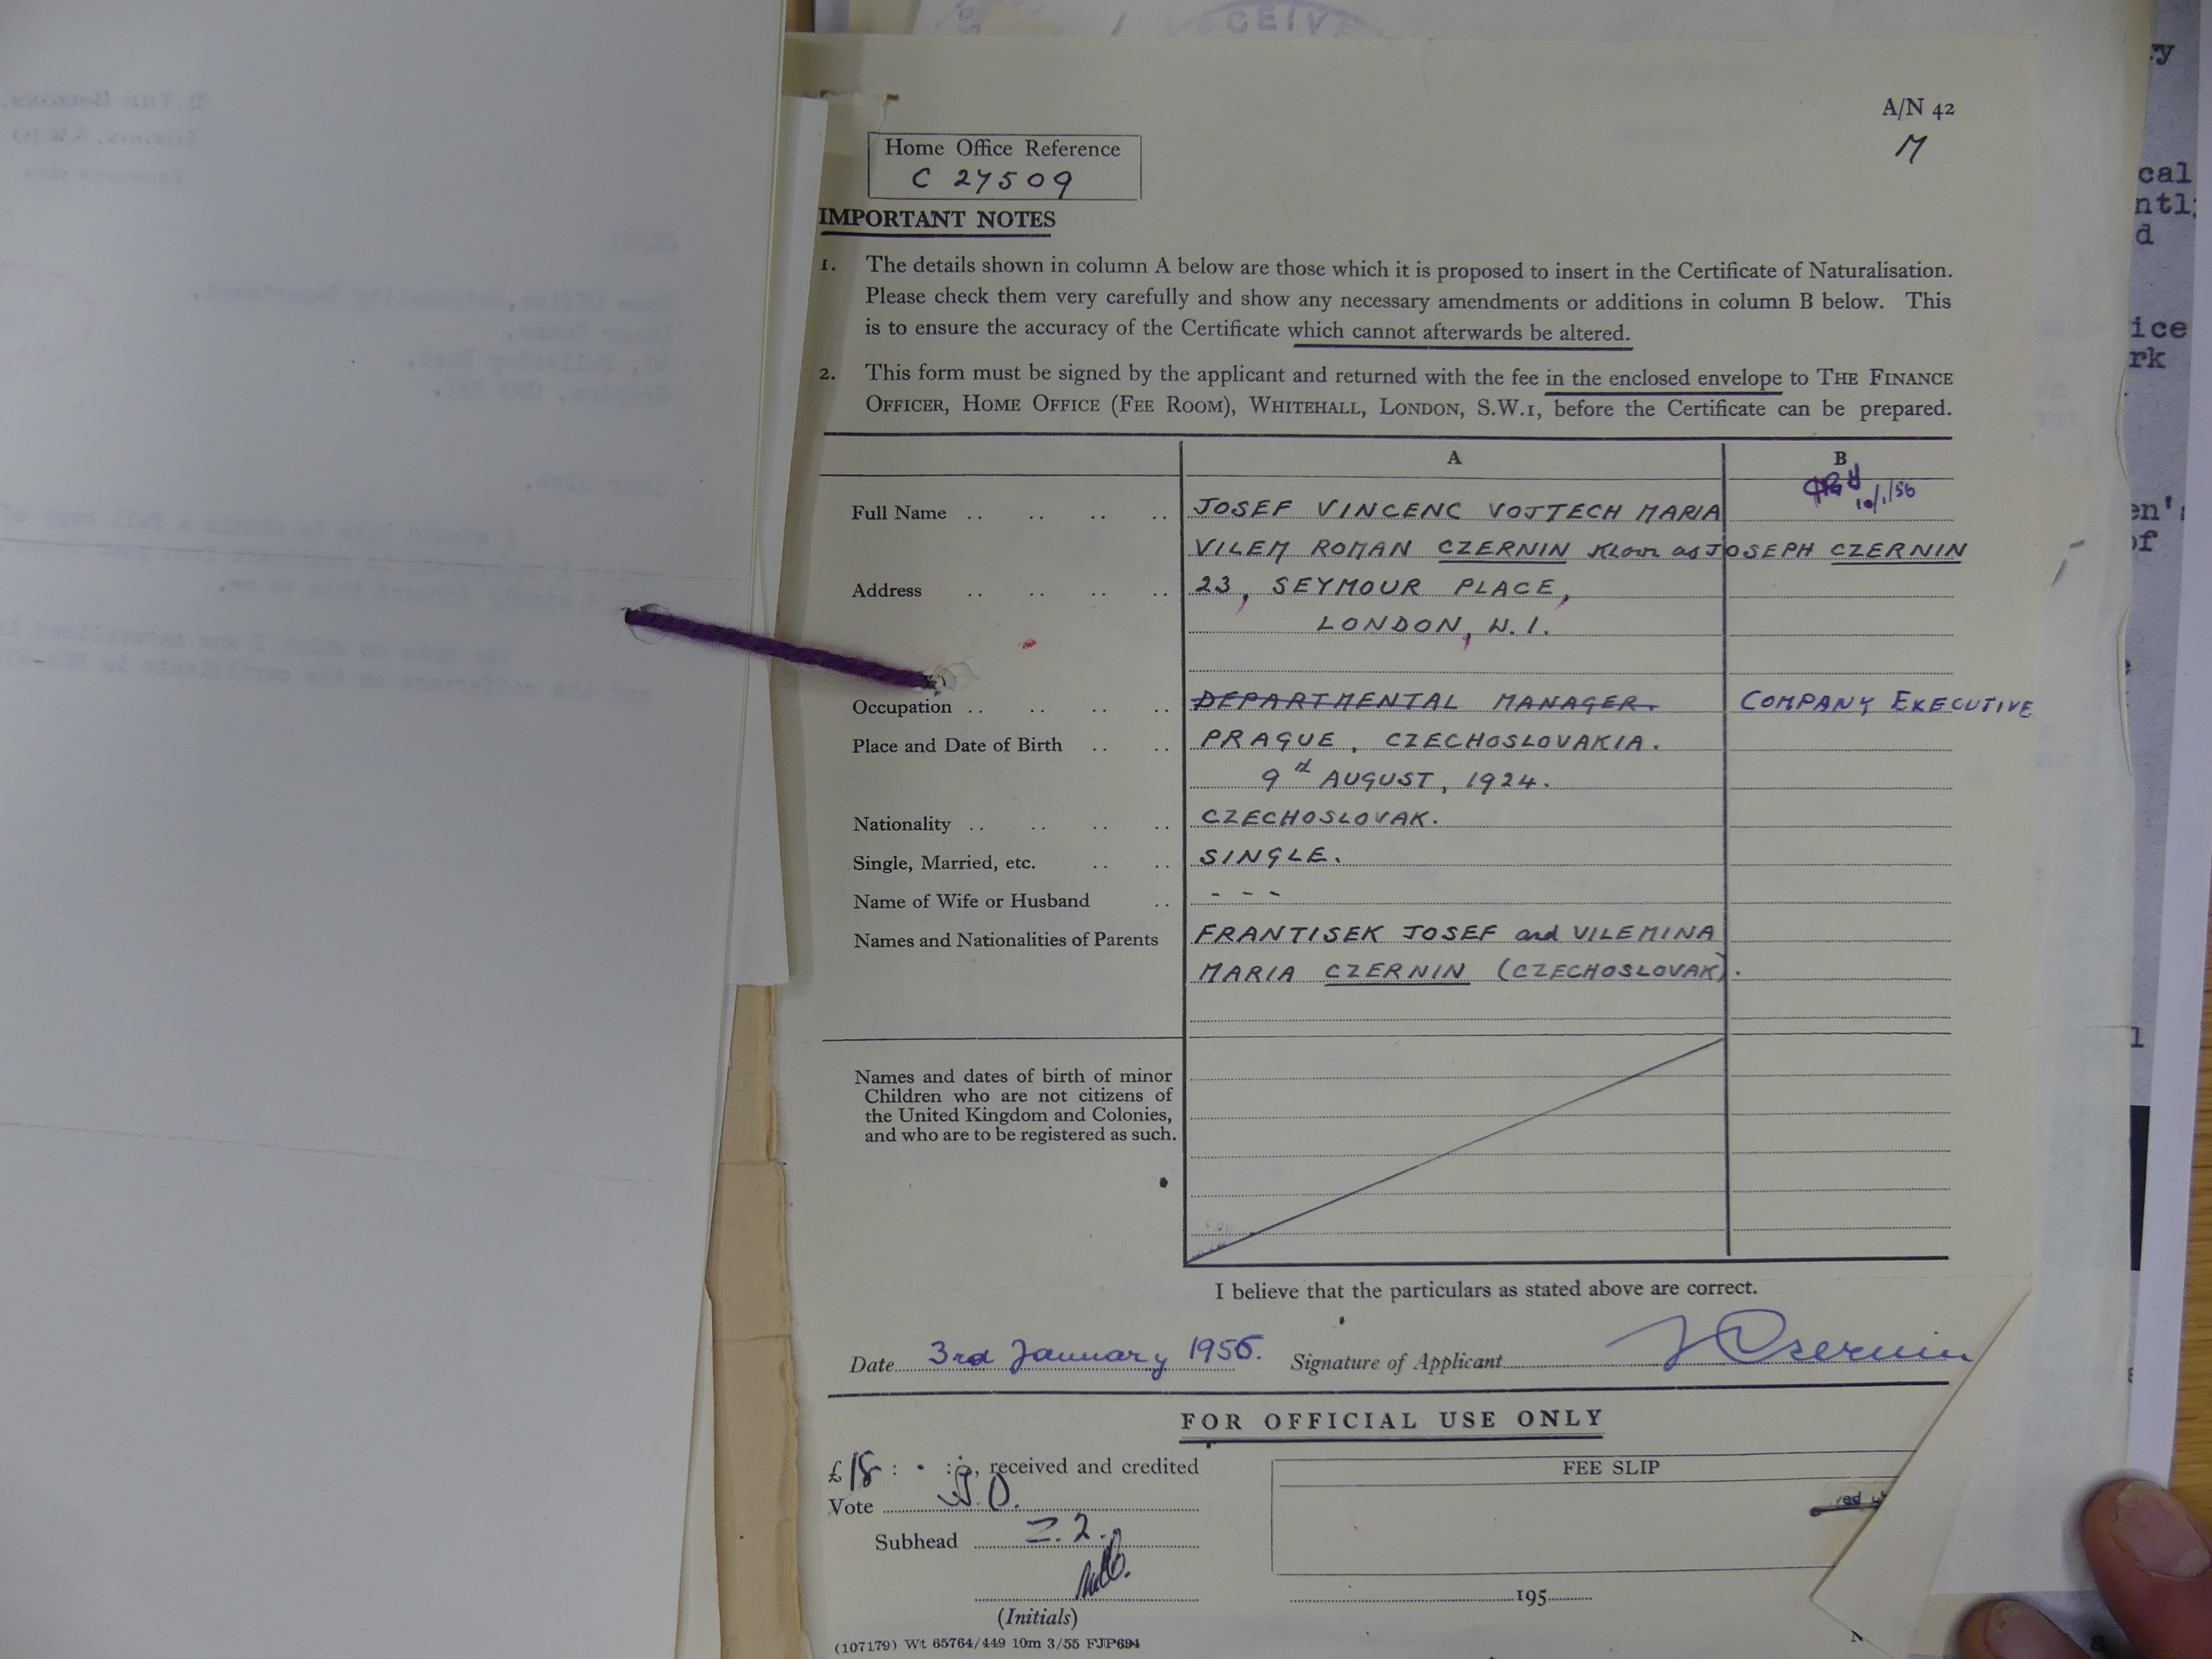 A/N 42
M
Home Office Reference
C 27509
IMPORTANT NOTES
1. The details shown in column A below are those which it is proposed to insert in the Certificate of Naturalisation.
Please check them very carefully and show any necessary amendments or additions in column B below. This
is to ensure the accuracy of the Certificate which cannot afterwards be altered.
2. This form must be signed by the applicant and returned with the fee in the enclosed envelope to THE FINANCE
OFFICER, HOME OFFICE (FEE ROOM), WHITEHALL, LONDON, S.W.1, before the Certificate can be prepared.
A B
10/1/56
Full Name .. .. .. .. JOSEF VINCENC VOJTECH MARIA
VILEM ROMAN CZERNIN known as JOSEPH CZERNIN
Address .. .. .. .. 23, SEYMOUR PLACE,
LONDON, W.1.
Occupation .. .. .. .. DEPARTMENTAL MANAGER. COMPANY EXECUTIVE
Place and Date of Birth .. .. PRAGUE, CZECHOSLOVAKIA.
9th AUGUST, 1924.
Nationality .. .. .. .. CZECHOSLOVAK.
Single, Married, etc. .. .. SINGLE.
Name of Wife or Husband .. - - -
Names and Nationalities of Parents FRANTISEK JOSEF and VILEMINA
MARIA CZERNIN (CZECHOSLOVAK).
Names and dates of birth of minor
Children who are not citizens of
the United Kingdom and Colonies,
and who are to be registered as such.
I believe that the particulars as stated above are correct.
Date 3rd January 1956. Signature of Applicant J Czernin
FOR OFFICIAL USE ONLY
£18 : - : , received and credited
Vote
Subhead Z.2.
(Initials)
FEE SLIP
195
(107179) Wt 65764/449 10m 3/55 FJP694